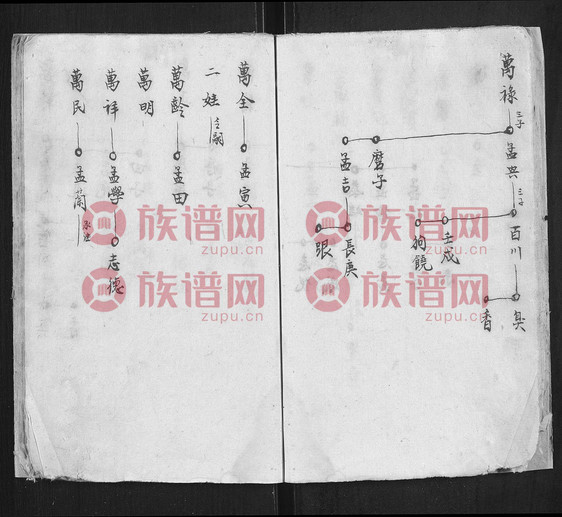 萬祿
三子
孟興
三子
百川
臭
香
壬成
狗饒
麿子
孟吉
長庚
跟
萬全
孟寅
二娃
萬齡
孟田
萬明
萬祥
孟學
志德
萬民
孟蘭
族谱网
zupu.cn
族谱网
zupu.cn
族谱网
zupu.cn
族谱网
zupu.cn